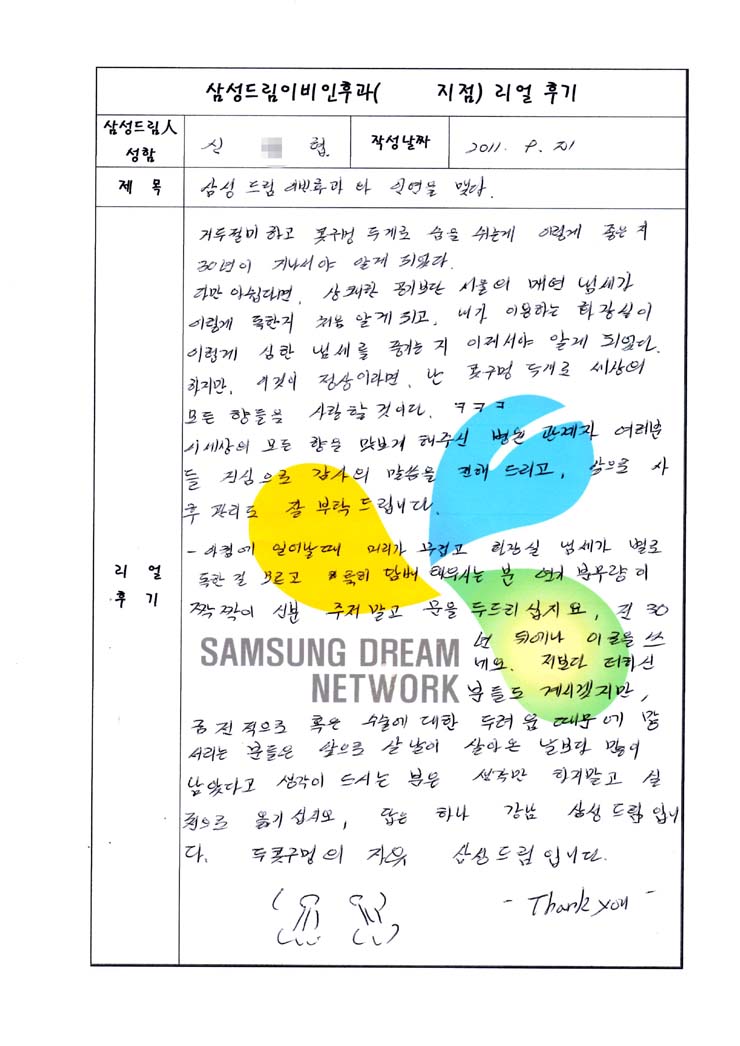 삼성드림이비인후과( 지점) 리얼 후기
삼성드림人
성함
신 협.
작성날짜
2011. 9. 21
제 목
삼성 드림 이빈후과 와 인연을 맺다.
리 얼
후 기
거두절미 하고 콧구멍 두게로 숨을 쉬는게 이렇게 좋은 지
30년이 지나서야 알게 되었다.
다만 아쉽다면, 상쾌한 공기보단 서울의 매연 냄세가
이렇게 독한지 처음 알게 되고, 내가 이용하는 화장실이
이렇게 심한 냄세를 풍기는 지 이제서야 알게 되었다.
하지만, 이것이 정상이라면, 난 콧구멍 두게로 세상의
모든 향들을 사랑할 것이다. ㅋㅋㅋ
이세상의 모든 향을 맛보게 해주신 병원 관계자 여러분
들 진심으로 감사의 말씀을 전해 드리고, 앞으로 사
후 관리도 잘 부탁 드립니다.
- 아침에 일어날때 머리가 무겁고 화장실 냄세가 별로
독한 걸 모르고 특히 담배 태우시는 분 연기 분무량이
짝짝이 신분 주저 말고 문을 두드리 십시요, 전 30
년 뒤에나 이 글을 쓰
네요. 저보다 더하신
분들도 계시겠지만,
SAMSUNG DREAM
NETWORK
금전적으로 혹은 수술에 대한 두려움 때문에 망
서리는 분들은 앞으로 살 날이 살아온 날보다 많이
남았다고 생각이 드시는 분은 생각만 하지말고 실
천으로 옮기 십시요, 답은 하나 강남 삼성 드림 입니
다. 두콧구멍의 자유 삼성드림 입니다.
- Thank you -